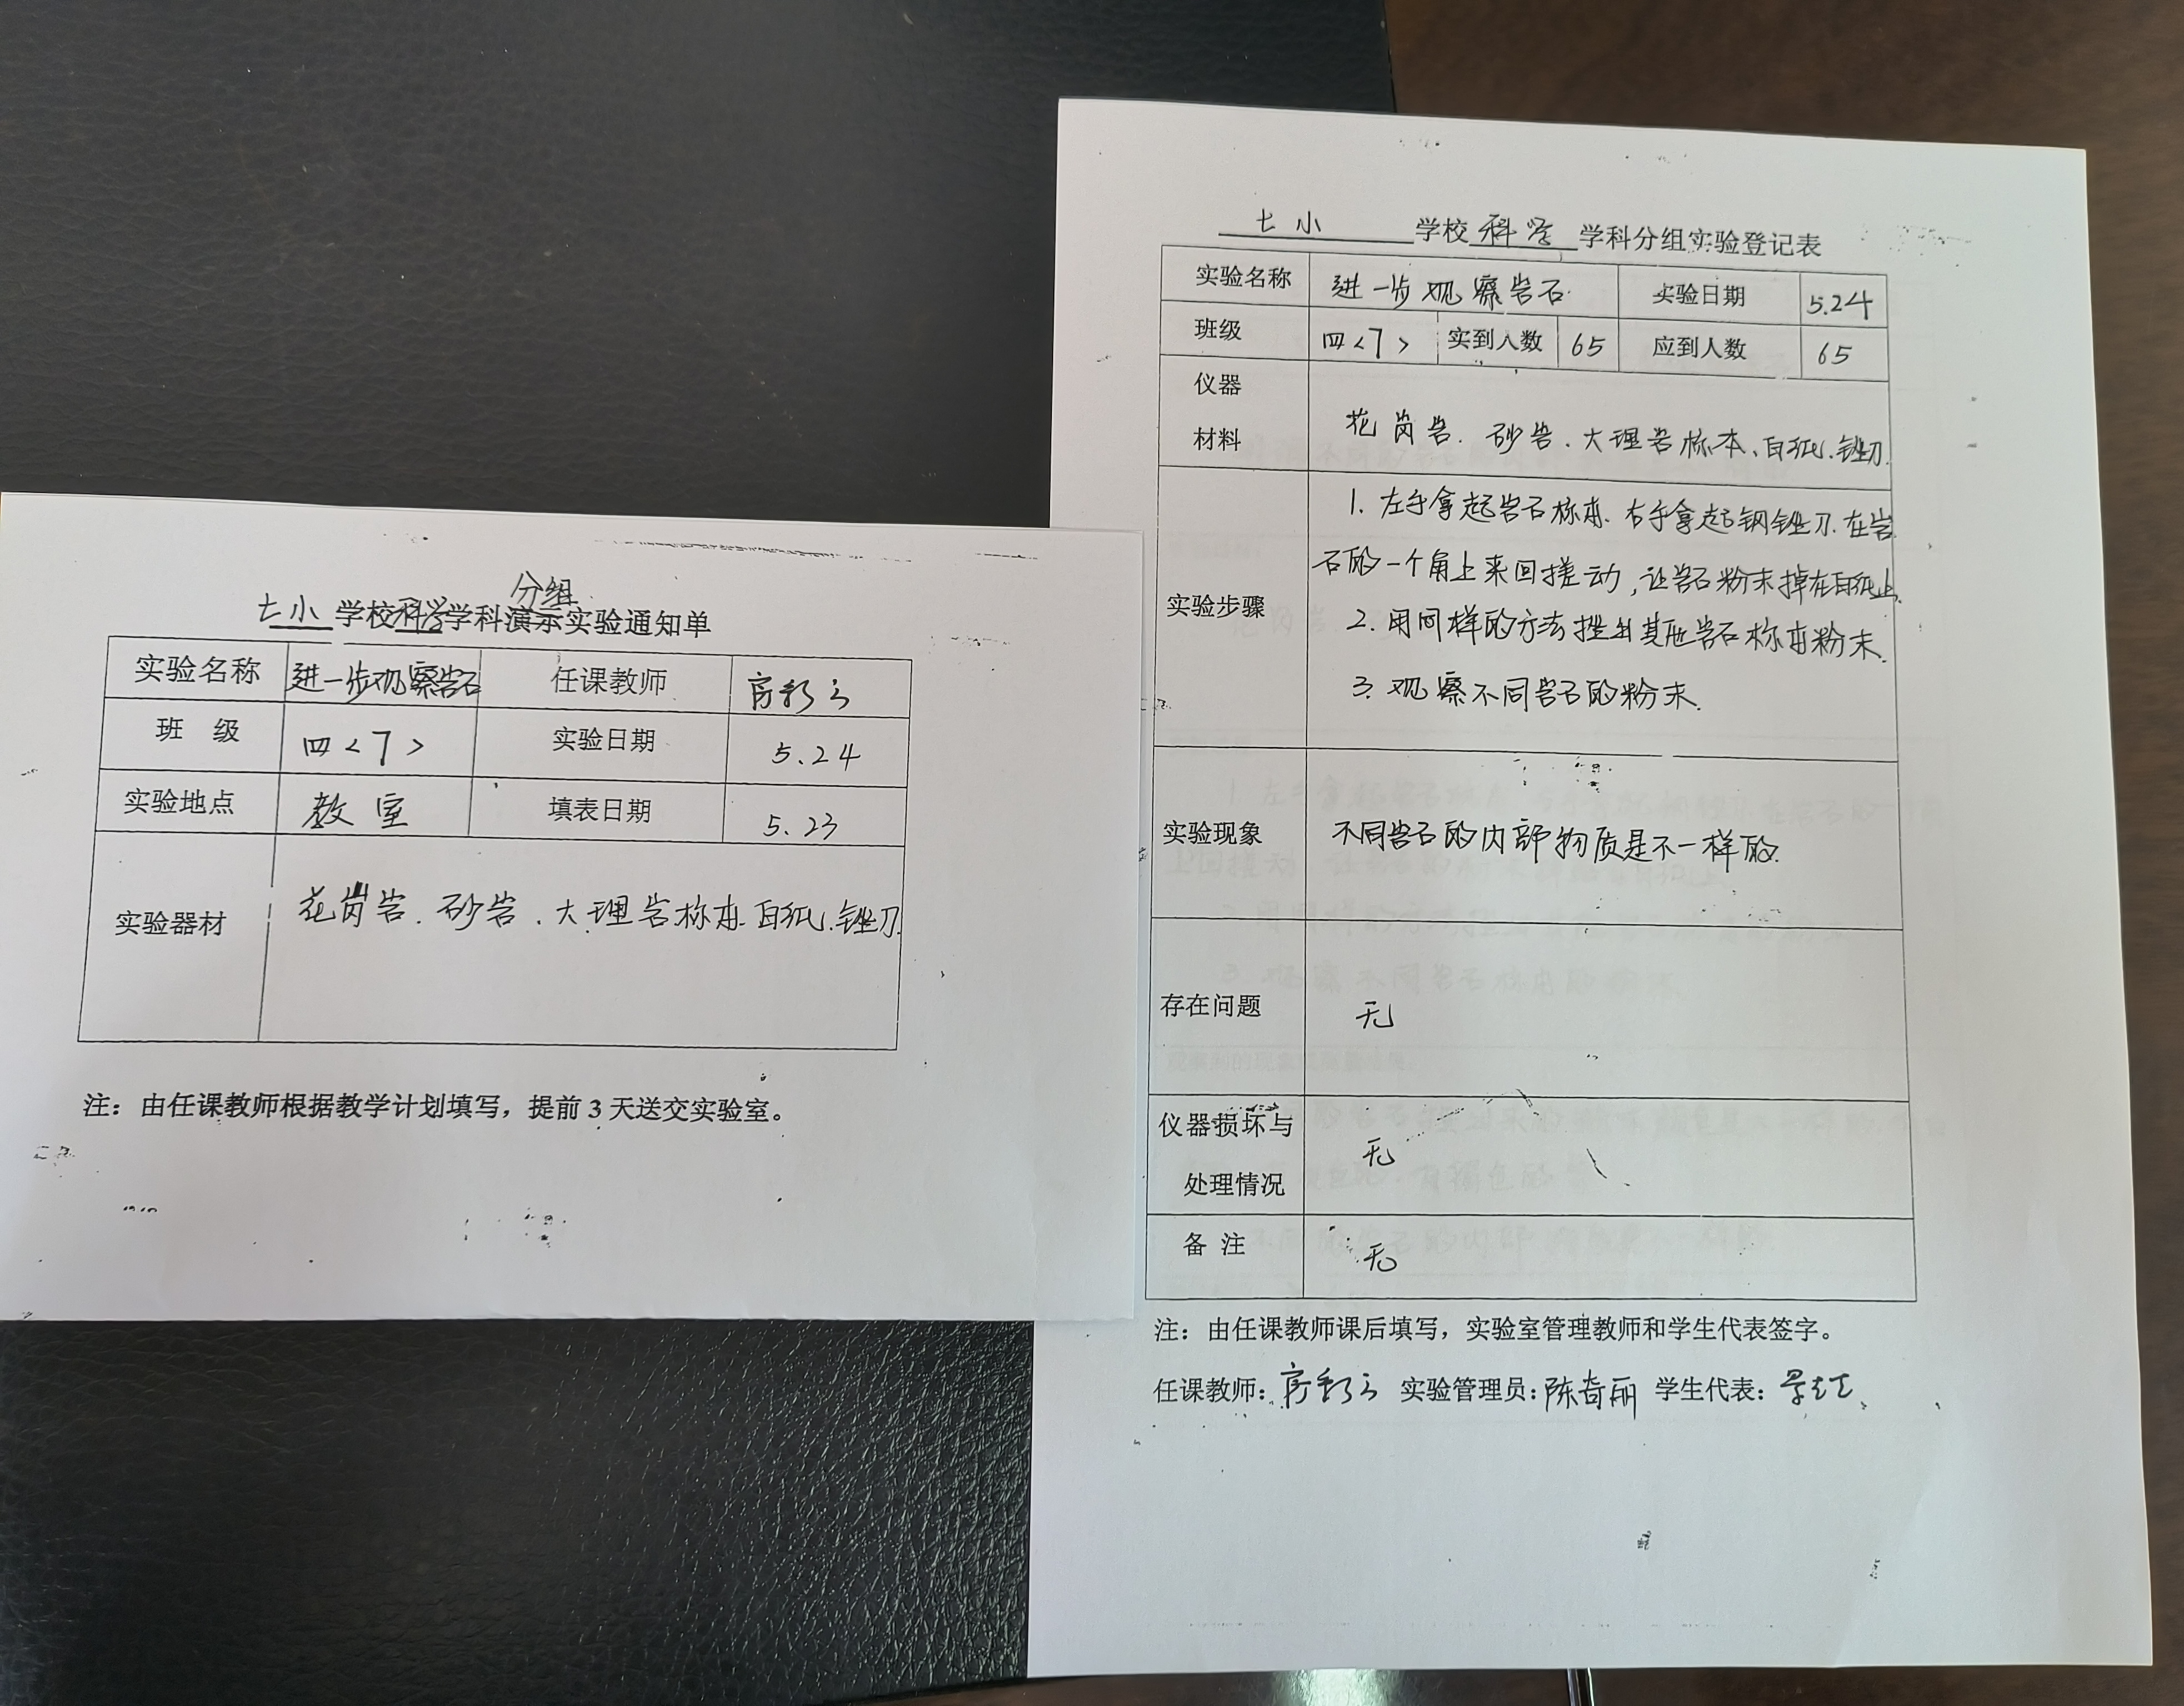 分组
七小 学校 科学 学科演示实验通知单
实验名称 进一步观察岩石 任课教师 房彩云
班 级 四<7> 实验日期 5.24
实验地点 教室 填表日期 5.23
实验器材 花岗岩.砂岩.大理岩标本.白纸.锉刀.
注：由任课教师根据教学计划填写，提前 3 天送交实验室。
七小 学校 科学 学科分组实验登记表
实验名称 进一步观察岩石 实验日期 5.24
班级 四<7> 实到人数 65 应到人数 65
仪器
材料 花岗岩.砂岩.大理岩标本、白纸.锉刀.
实验步骤
1. 左手拿起岩石标本.右手拿起钢锉刀.在岩
石的一个角上来回搓动,让岩石粉末掉在白纸上.
2. 用同样的方法挫出其他岩石标本粉末.
3. 观察不同岩石的粉末.
实验现象 不同岩石的内部物质是不一样的.
存在问题 无
仪器损坏与
处理情况 无
备 注 无
注：由任课教师课后填写，实验室管理教师和学生代表签字。
任课教师：房彩云 实验管理员：陈奇丽 学生代表：